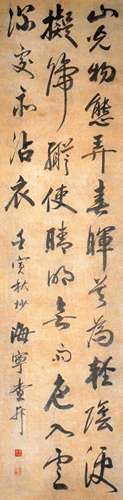 山光物態弄春暉莫為輕陰便
擬歸縱使晴明無雨色入雲
深處亦沾衣 壬寅秋杪 海寧查昇